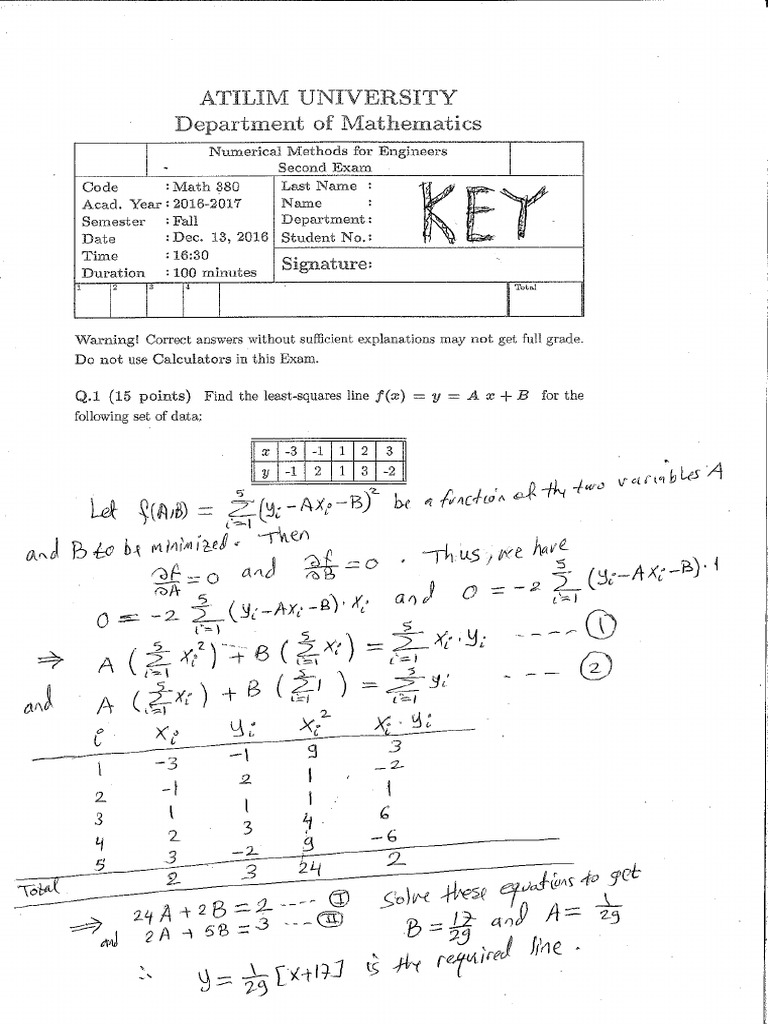 ATILIM UNIVERSITY
Department of Mathematics
Numerical Methods for Engineers
Second Exam
Code : Math 380
Acad. Year : 2016-2017
Semester : Fall
Date : Dec. 13, 2016
Time : 16:30
Duration : 100 minutes
Last Name :
Name :
Department :
Student No. :
KEY
Signature:
1 2 3 4 Total
Warning! Correct answers without sufficient explanations may not get full grade.
Do not use Calculators in this Exam.
Q.1 (15 points) Find the least-squares line f(x) = y = A x + B for the
following set of data:
x -3 -1 1 2 3
y -1 2 1 3 -2
Let f(A,B) = ∑_{i=1}^{5} (y_i - Ax_i - B)^2 be a function of the two variables A
and B to be minimized. Then
∂f/∂A = 0 and ∂f/∂B = 0. Thus, we have
0 = -2 ∑_{i=1}^{5} (y_i - Ax_i - B)·x_i and 0 = -2 ∑_{i=1}^{5} (y_i - Ax_i - B)·1
⇒ A (∑_{i=1}^{5} x_i^2) + B (∑_{i=1}^{5} x_i) = ∑_{i=1}^{5} x_i·y_i ---- ①
and A (∑_{i=1}^{5} x_i) + B (∑_{i=1}^{5} 1) = ∑_{i=1}^{5} y_i --- ②
i x_i y_i x_i^2 x_i·y_i
1 -3 -1 9 3
2 -1 2 1 -2
3 1 1 1 1
4 2 3 4 6
5 3 -2 9 -6
Total 2 3 24 2
⇒ 24A + 2B = 2 ---- Ⅰ Solve these equations to get
and 2A + 5B = 3 --- Ⅱ B = 17/29 and A = 1/29
∴ y = 1/29 [x+17] is the required line.